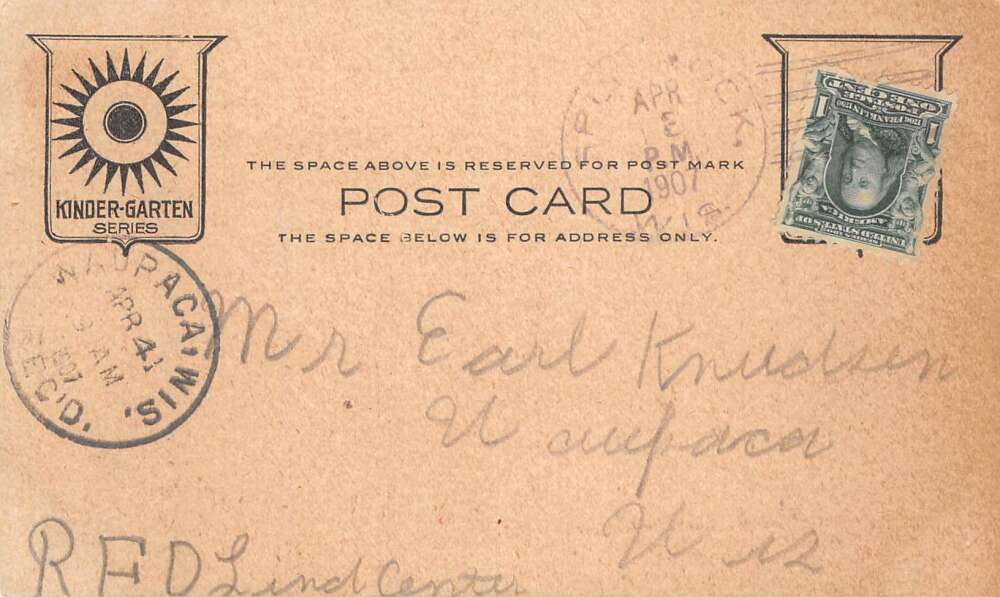 KINDER-GARTEN
SERIES
THE SPACE ABOVE IS RESERVED FOR POST MARK
POST CARD
THE SPACE BELOW IS FOR ADDRESS ONLY.
CK.
APR
P.M
1907
WIS.
1 1
POSTAGE
ONE CENT
1706 FRANKLIN 1790
UNITED STATES OF
AMERICA
WAUPACA, WIS.
APR 4
AM
1907
REC'D.
Mr Earl Knudsen
Waupaca
Wis
R F D Lind Center